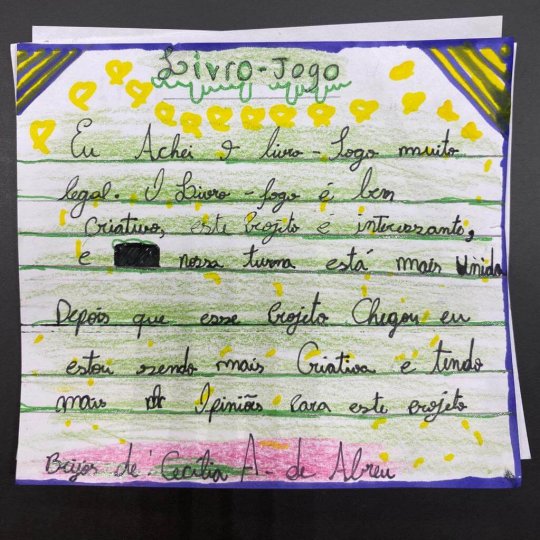 Livro-Jogo
Eu Achei o livro-Jogo muito
legal. O Livro-Jogo é bem
criativo, este Projeto é interessante,
e nossa turma está mais Unida
Depois que esse Projeto Chegou eu
estou sendo mais Criativa e tendo
mais Opiniões Para este projeto
Beijos de: Cecília A. de Abreu